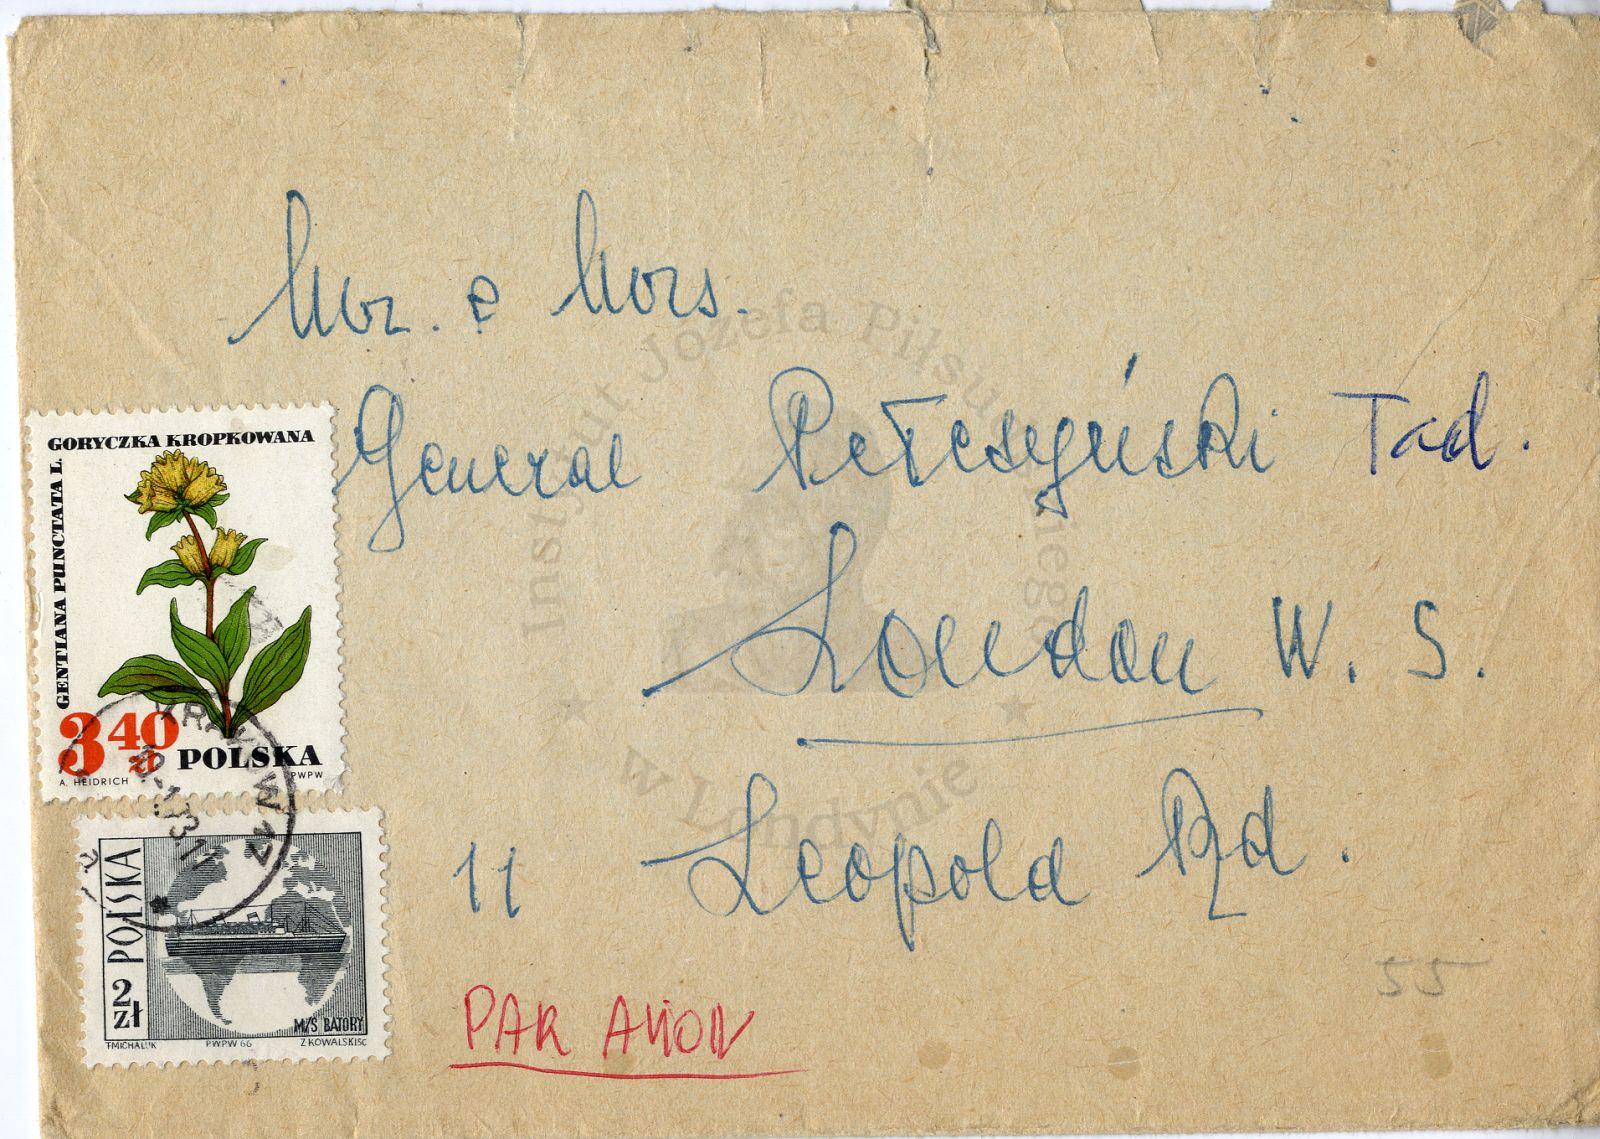 Mr. e Mrs.
General Pełczyński Tad.
London W. S.
11 Leopold Rd.
PAR AVION
55
GORYCZKA KROPKOWANA
GENTIANA PUNCTATA L.
3 40 zł POLSKA
A. HEIDRICH PWPW
KRAKÓW 2
POLSKA
2 zł
M/S BATORY
T.MICHALUK P.W.P.W 66 Z.KOWALSKI SC
Instytut Józefa Piłsudskiego
w Londynie